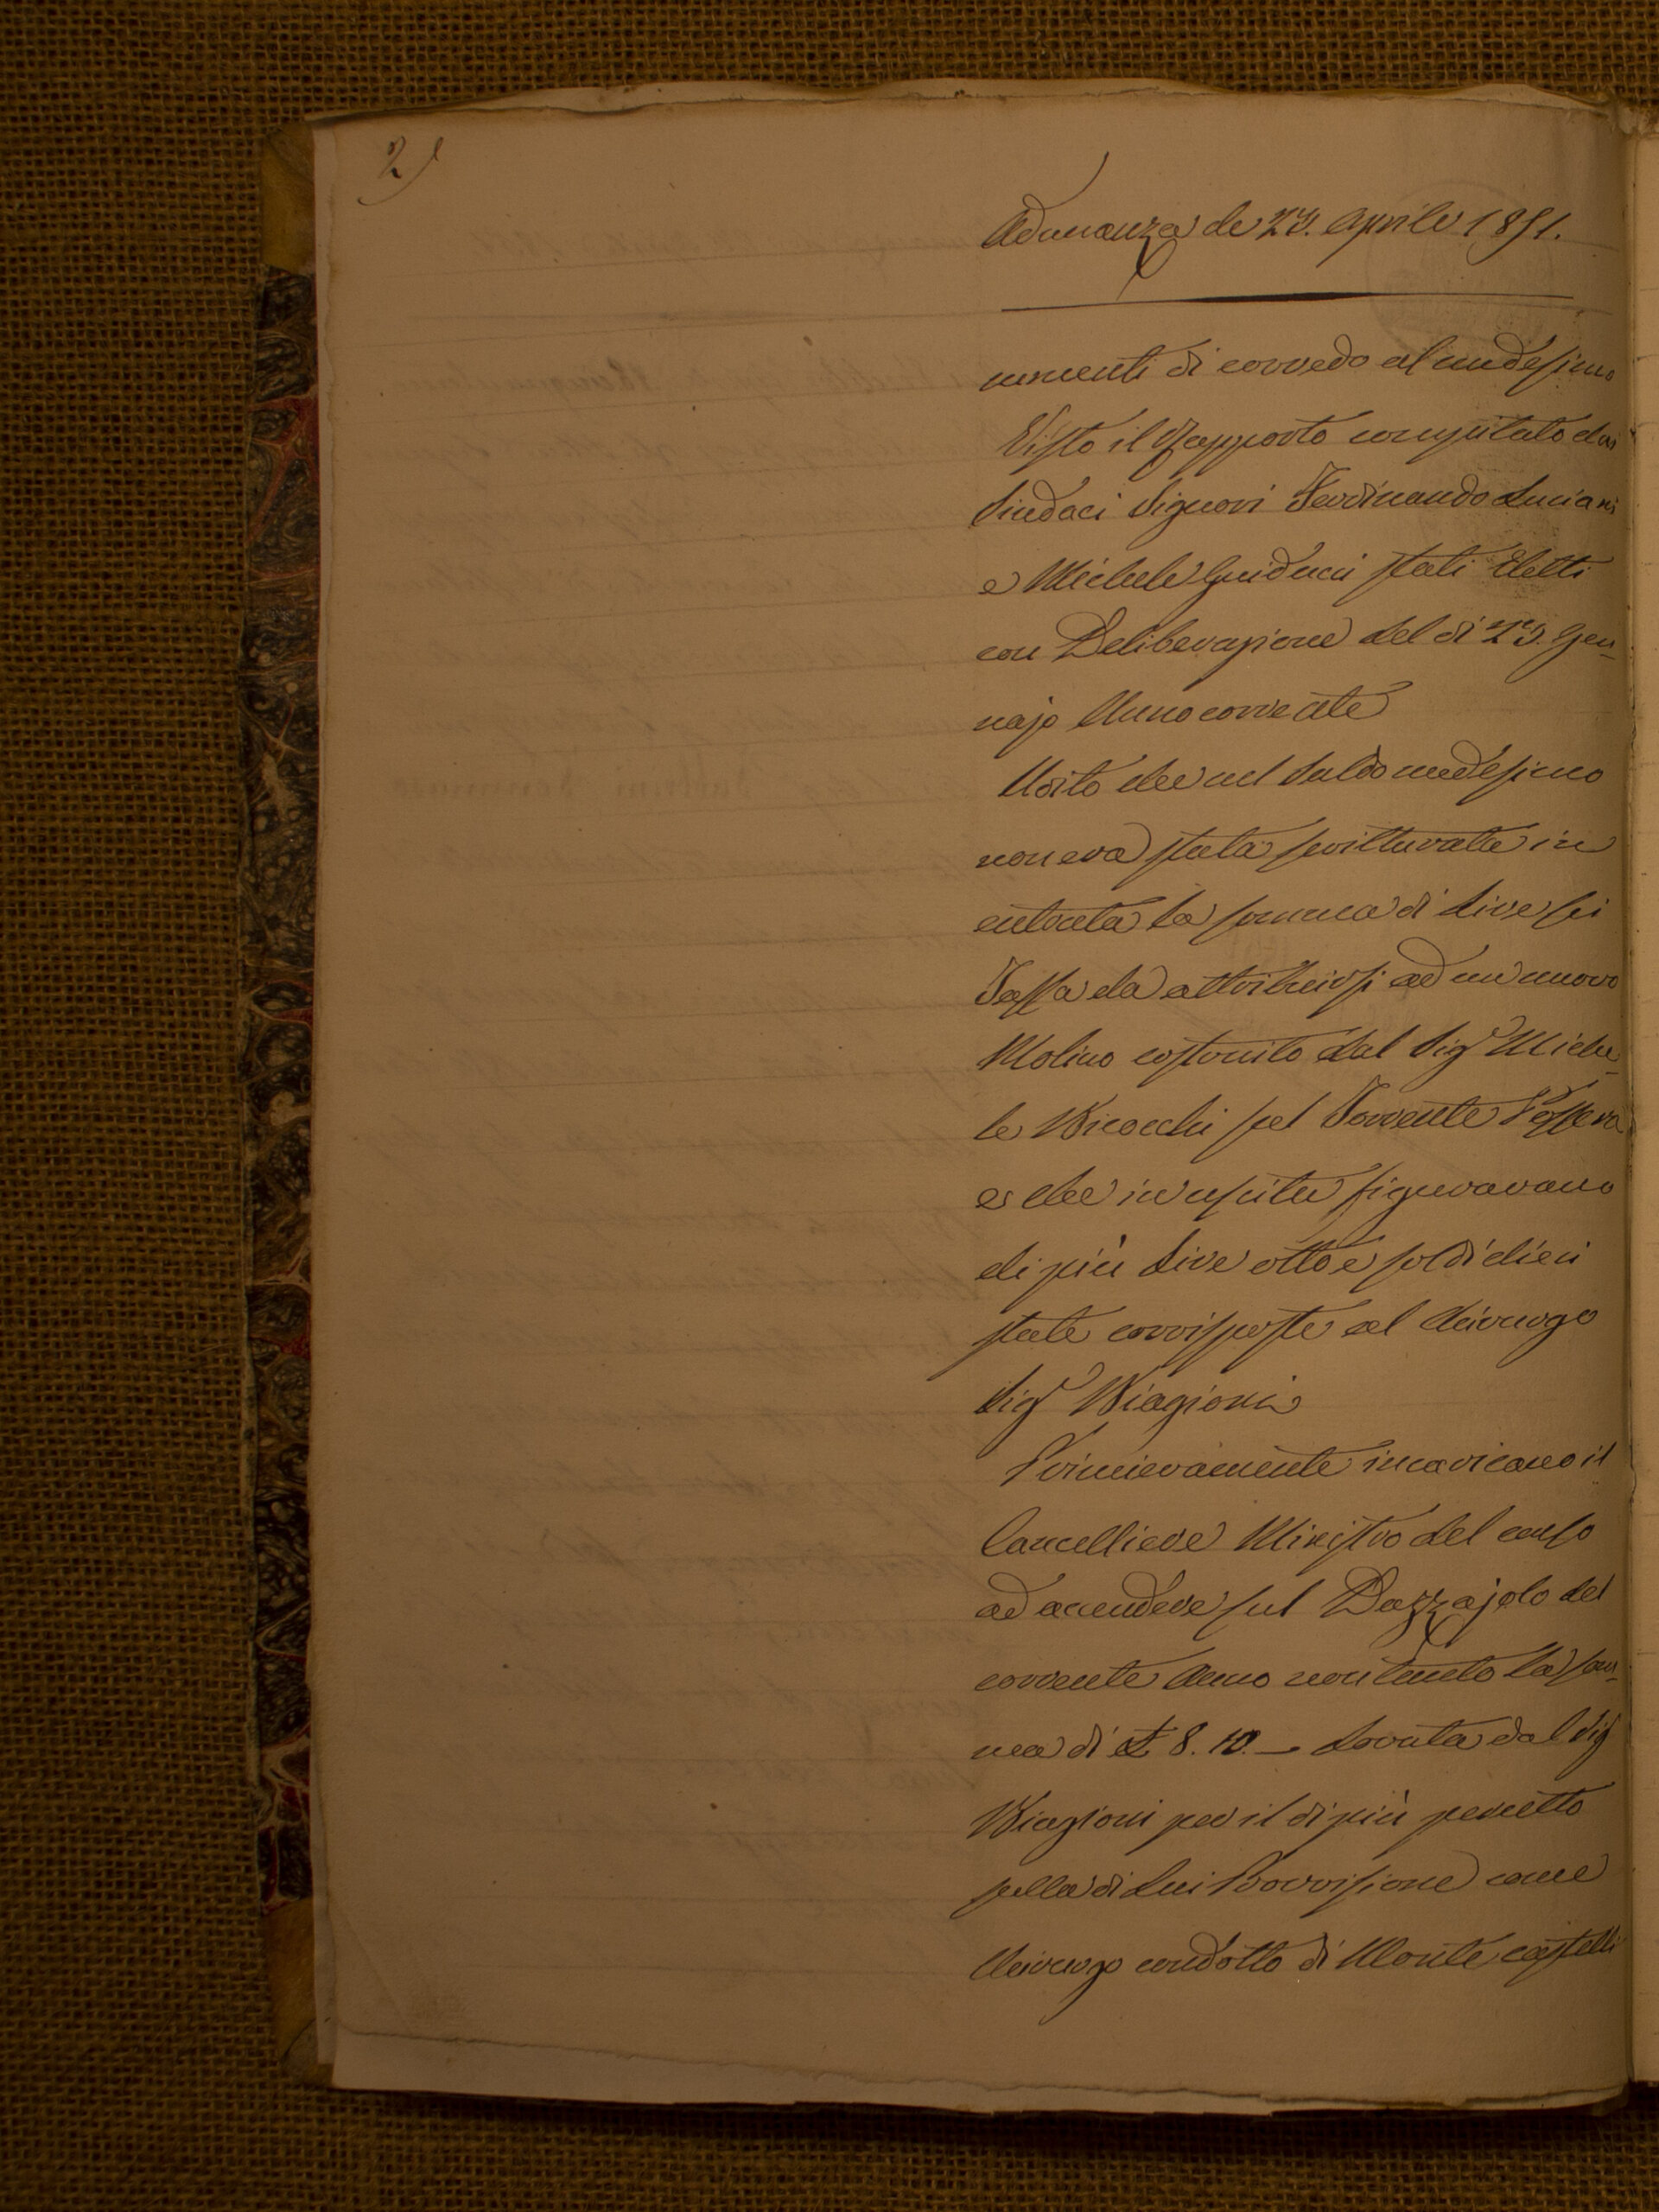 2)
Adunanza de 23. Aprile 1851.
numenti di corredo al medesimo
Visto il Rapporto compilato dai
Sindaci Signori Ferdinando Luciani
e Michele Guiducci stati Eletti
con Deliberazione del di 23. Gen-
najo Anno corrente
Udito che nel Saldo medesimo
non era stata scritturata in
entrata la somma di Lire sei
Tassa da attribuirsi ad un nuovo
Molino costruito dal Sigr Miche-
le Bicocchi sul Torrente Possera
e che in uscita figuravano
di più Lire otto e soldi dieci
state corrisposte al Chirurgo
Sigr Biagioni
Primieramente incaricano il
Cancelliere Ministro del censo
ad accendere sul Dazzajolo del
corrente Anno la som-
ma di £ 8. 10. — dovuta dal Sig
Biagioni per il di più percetto
sulla di Lui Provvisione come
Chirurgo condotto di Monte castelli